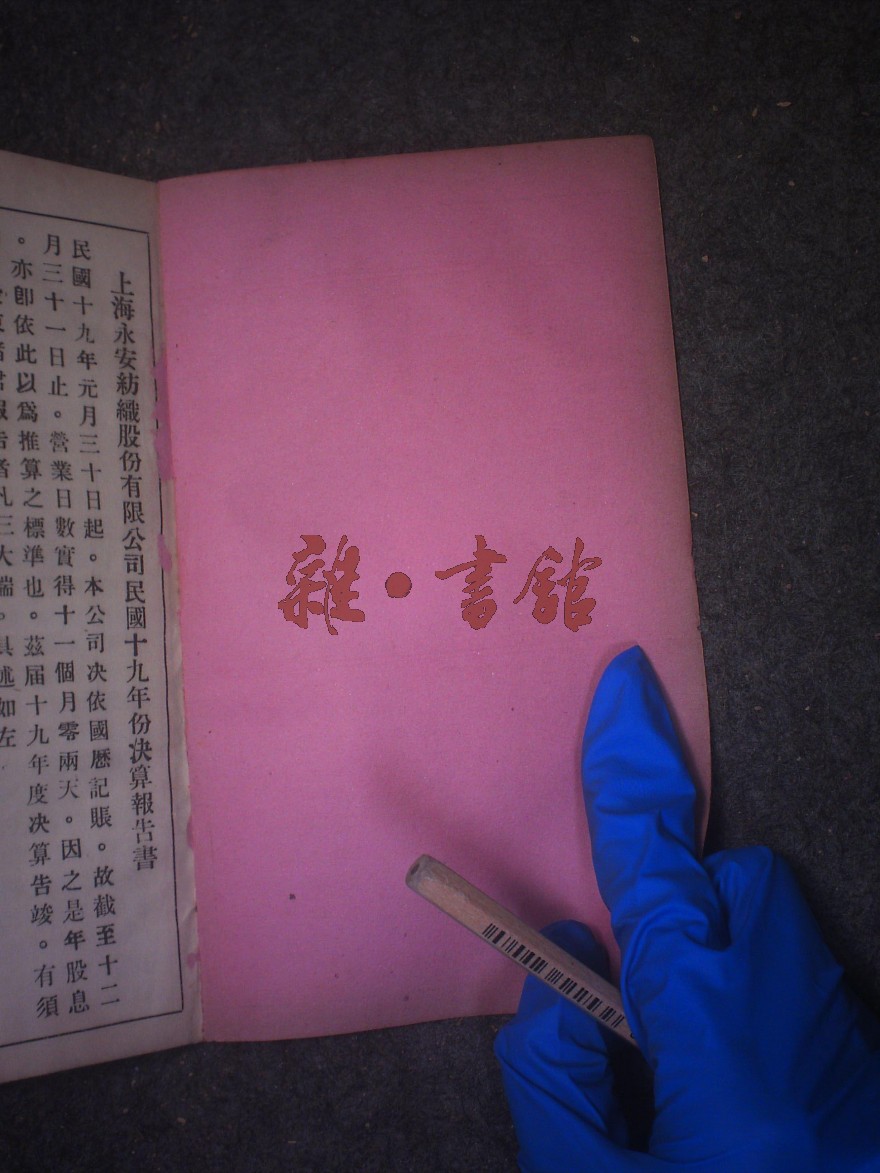 上海永安紡織股份有限公司民國十九年份決算報告書
民國十九年元月三十日起。本公司决依國曆記賬。故截至十二
月三十一日止。營業日數實得十一個月零兩天。因之是年股息
。亦卽依此以爲推算之標準也。茲届十九年度决算告竣。有須
報告者凡三大端。具述如左
雜•書館